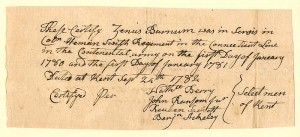 These Certify Zenus Barnum was in Servis in
Colo. Heman Swift Regiment in the Connecticut Line
in the Continental army on the first Day of January
1780 and the first Day of January 1781
Dated at Kent Sept 24th
Certifyed Per
Nathll Berry
John Ransom
Reuben
Benjn
Select men
of Kent